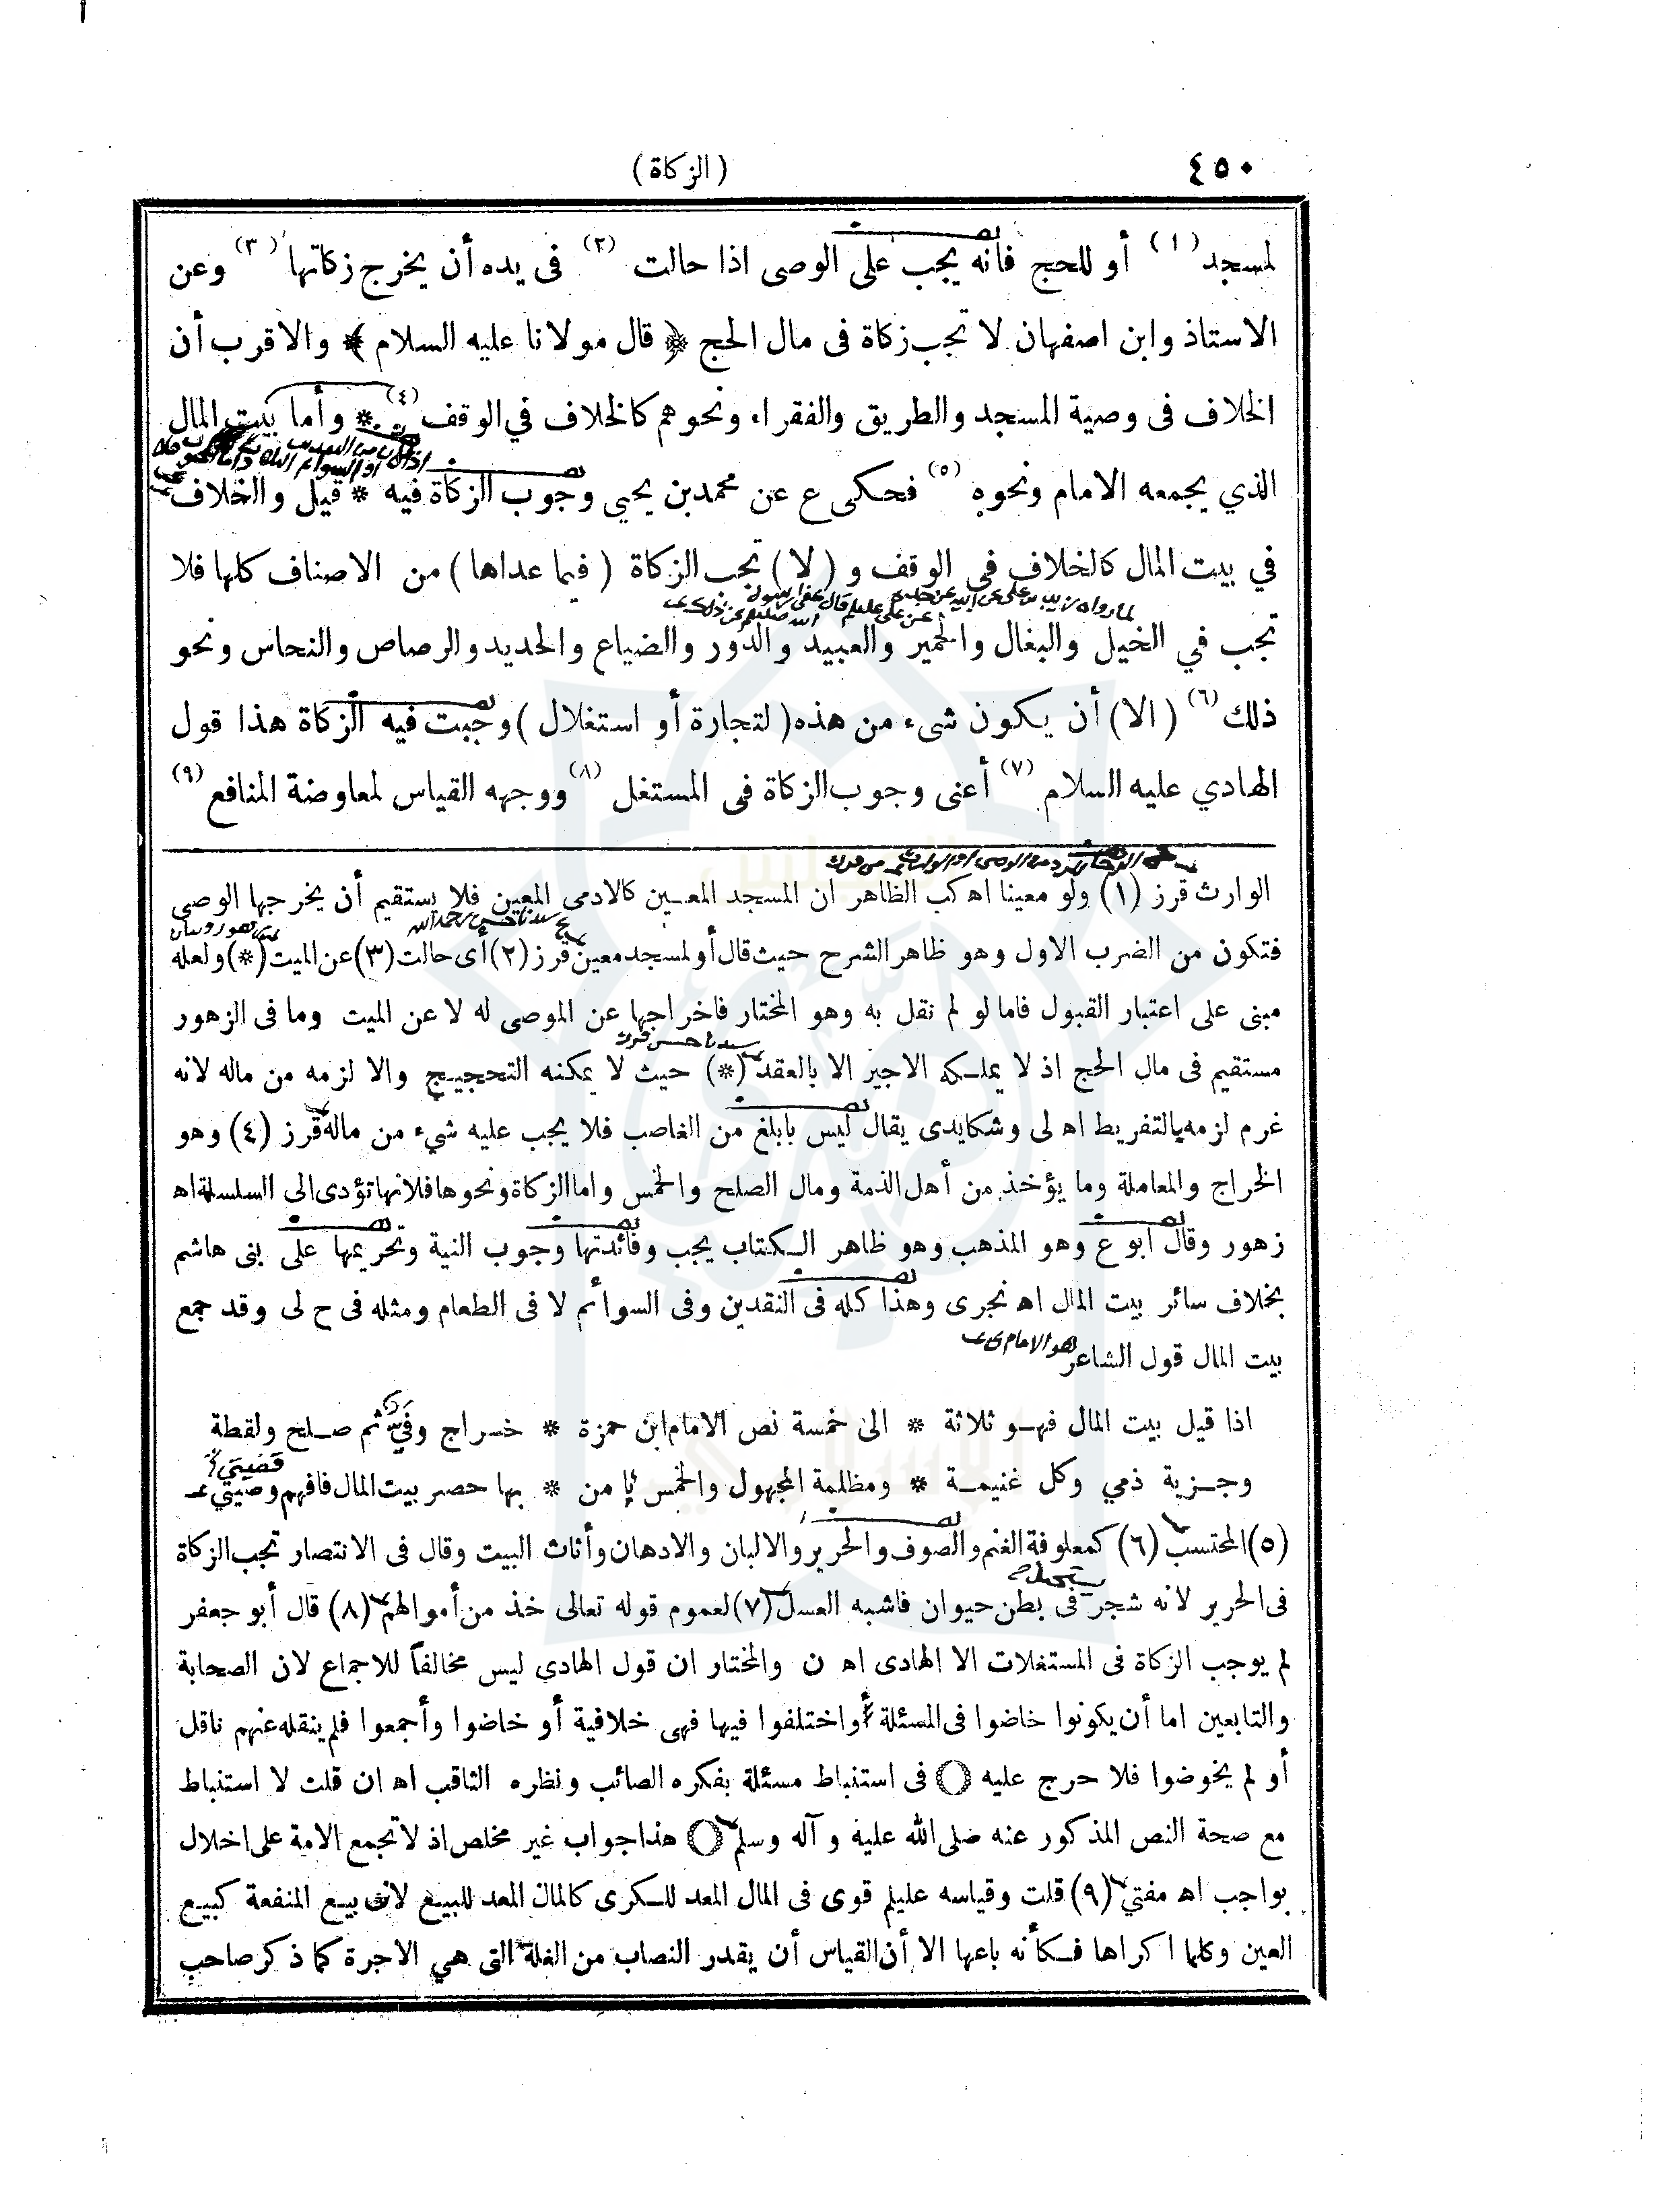 ٤٥٠
(الزكاة)
لمسجد (١) أو للحج فانه يجب على الوصى اذا حالت (٢) فى يده أن يخرج زكاتها (٣) وعن
الاستاذ وابن اصفهان لا تجب زكاة فى مال الحج ﴿ قال مولانا عليه السلام ﴾ والاقرب أن
الخلاف فى وصية المسجد والطريق والفقراء ونحوهم كالخلاف في الوقف (٤) * وأما بيت المال
الذي يجمعه الامام ونحوه (٥) فحكى ع عن محمد بن يحيى وجوب الزكاة فيه * قيل والخلاف
في بيت المال كالخلاف فى الوقف و (لا) تجب الزكاة (فيما عداها) من الاصناف كلها فلا
لما رواه زيد بن علي عن ابيه عن جده عن علي عليلم قال عفا رسول الله صلى
تجب في الخيل والبغال والحمير والعبيد والدور والضياع والحديد والرصاص والنحاس ونحو
ذلك (٦) (الا) أن يكون شىء من هذه (لتجارة أو استغلال) وجبت فيه الزكاة هذا قول
الهادي عليه السلام (٧) أعنى وجوب الزكاة فى المستغل (٨) ووجهه القياس لمعاوضة المنافع (٩)
الوارث قرز (١) ولو معينا اه كب الظاهر ان المسجد المعين كالادمى المعين فلا يستقيم أن يخرجها الوصى
سيدنا حسن رحمه الله
فتكون من الضرب الاول وهو ظاهر الشرح حيث قال أو لمسجد معين قرز (٢) أى حالت (٣) عن الميت (*) ولعله
مبنى على اعتبار القبول فاما لو لم نقل به وهو المختار فاخراجها عن الموصى له لا عن الميت وما فى الزهور
سيدنا حسن قرز
مستقيم فى مال الحج اذ لا يملكه الاجير الا بالعقد (*) حيث لا يمكنه التحجيج والا لزمه من ماله لانه
غرم لزمه بالتفريط اه لى وشكايدى يقال ليس بابلغ من الغاصب فلا يجب عليه شيء من ماله قرز (٤) وهو
الخراج والمعاملة وما يؤخذ من أهل الذمة ومال الصلح والخمس واما الزكاة ونحوها فلانها تؤدى الى السلسلة اه
زهور وقال ابو ع وهو المذهب وهو ظاهر الكتاب يجب وفائدتها وجوب النية وتحريمها على بنى هاشم
بخلاف سائر بيت المال اه نجرى وهذا كله فى النقدين وفى السوائم لا فى الطعام ومثله فى ح لى وقد جمع
بيت المال قول الشاعر هو الامام ى
اذا قيل بيت المال فهو ثلاثة * الى خمسة نص الامام ابن حمزة * خراج وفيء ثم صلح ولقطة
وجزية ذمي وكل غنيمة * ومظلمة المجهول والخمس يا من * بها حصر بيت المال فافهم وصيتي
(٥) المحتسب (٦) كمعلوفة الغنم والصوف والحرير والالبان والادهان وأثاث البيت وقال فى الانتصار تجب الزكاة
فى الحرير لانه شجر فى بطن حيوان فاشبه العسل (٧) لعموم قوله تعالى خذ من أموالهم (٨) قال أبو جعفر
لم يوجب الزكاة فى المستغلات الا الهادى اه ن والمختار ان قول الهادي ليس مخالفاً للاجماع لان الصحابة
والتابعين اما أن يكونوا خاضوا فى المسئلة أو اختلفوا فيها فهى خلافية أو خاضوا وأجمعوا فلم ينقله عنهم ناقل
أو لم يخوضوا فلا حرج عليه ○ فى استنباط مسئلة بفكره الصائب ونظره الثاقب اه ان قلت لا استنباط
مع صحة النص المذكور عنه صلى الله عليه وآله وسلم ○ هذا جواب غير مخلص اذ لا تجمع الامة على اخلال
بواجب اه مفتي (٩) قلت وقياسه عليلم قوى فى المال المعد للكرى كالمال المعد للبيع لان بيع المنفعة كبيع
العين وكلما اكراها فكأنه باعها الا أن القياس أن يقدر النصاب من الغلة التى هي الاجرة كما ذكر صاحب